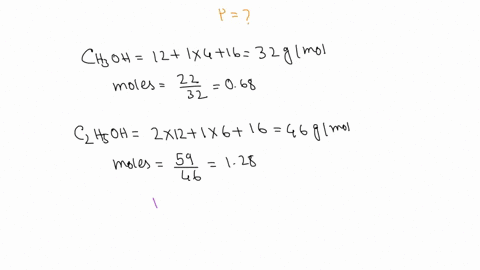 P = ?
CH3OH = 12 + 1×4 + 16 = 32 g/mol
moles = 22/32 = 0.68
C2H5OH = 2×12 + 1×6 + 16 = 46 g/mol
moles = 59/46 = 1.28